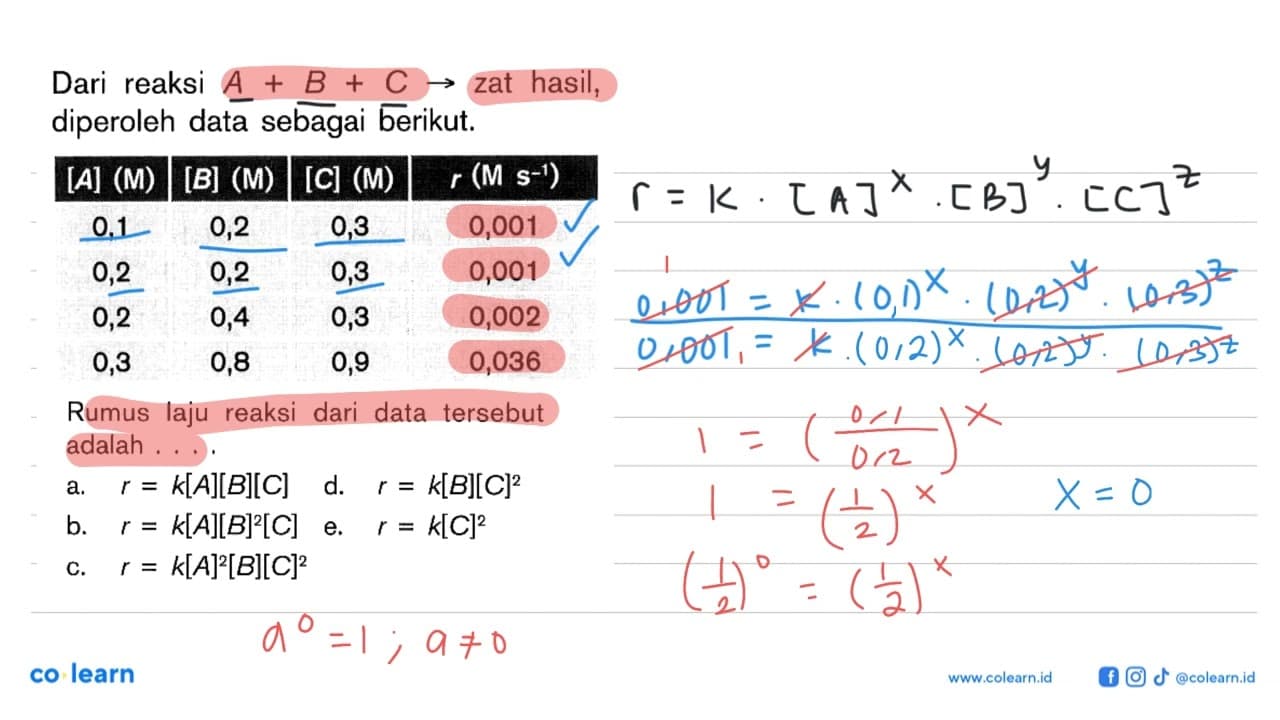 Dari reaksi A + B + C → zat hasil,
diperoleh data sebagai berikut.
[A] (M) [B] (M) [C] (M) r (M s⁻¹)
0,1 0,2 0,3 0,001
0,2 0,2 0,3 0,001
0,2 0,4 0,3 0,002
0,3 0,8 0,9 0,036
Rumus laju reaksi dari data tersebut
adalah . . . .
a. r = k[A][B][C] d. r = k[B][C]²
b. r = k[A][B]²[C] e. r = k[C]²
c. r = k[A]²[B][C]²
a⁰ = 1 ; a ≠ 0
r = k . [A]^x . [B]^y . [C]^z
1
0,001 = k . (0,1)^x . (0,2)^y . (0,3)^z
0,001 1 = k . (0,2)^x . (0,2)^y . (0,3)^z
1 = (0,1/0,2)^x
1 = (1/2)^x x = 0
(1/2)⁰ = (1/2)^x
co learn
www.colearn.id @colearn.id